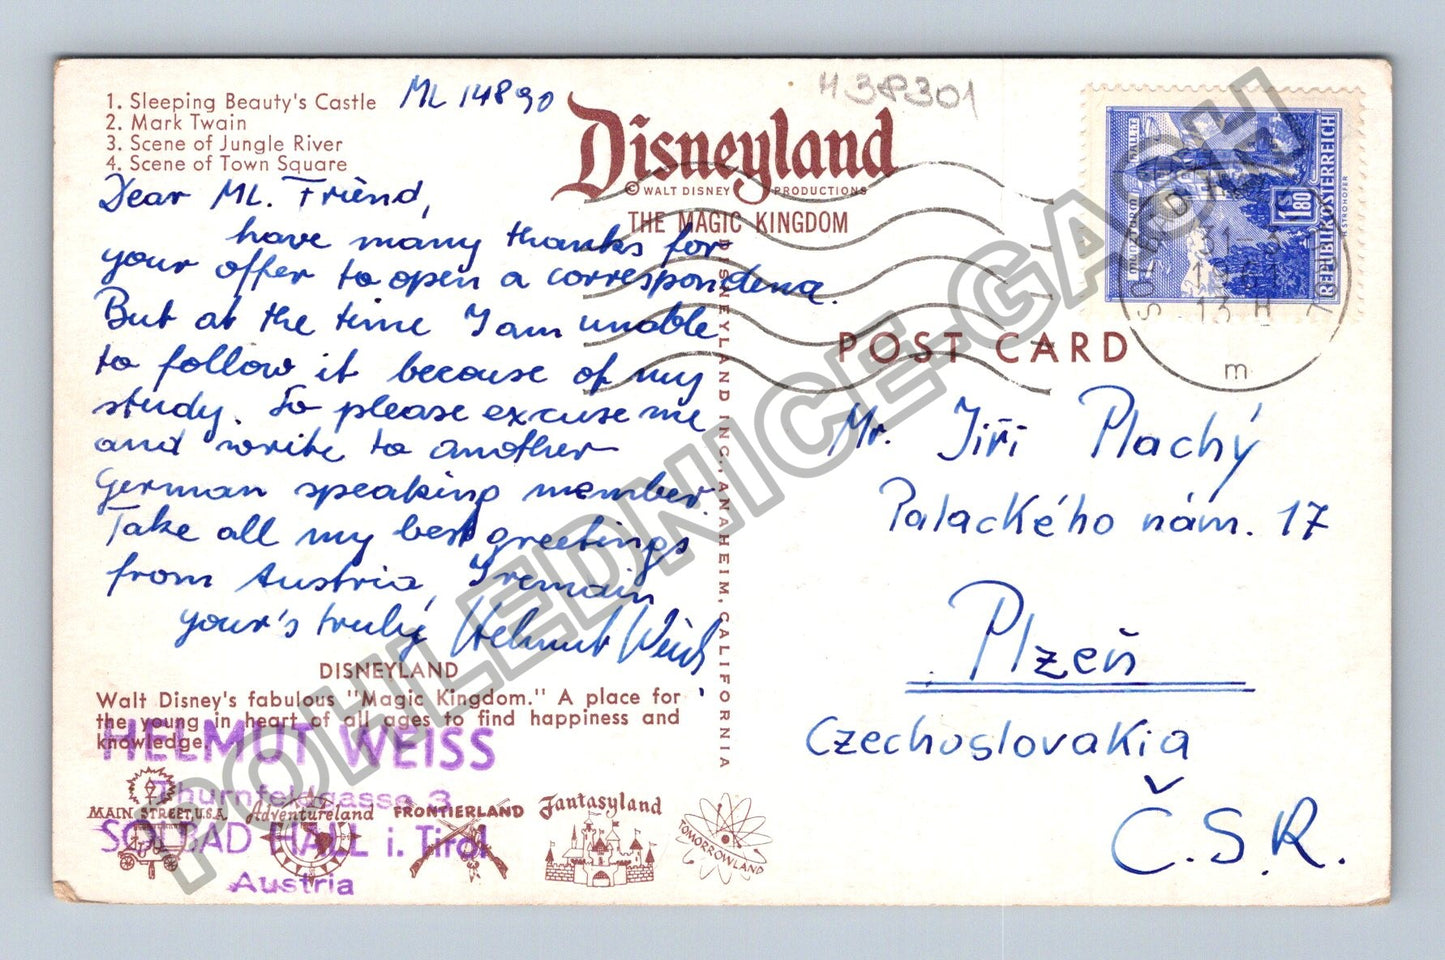 1. Sleeping Beauty's Castle
2. Mark Twain
3. Scene of Jungle River
4. Scene of Town Square
ML 14890
H38301
Disneyland
© WALT DISNEY PRODUCTIONS
THE MAGIC KINGDOM
Dear ML. Friend,
have many thanks for
your offer to open a correspondena.
But at the time I am unable
to follow it because of my
study. So please excuse me
and write to another
German speaking member.
Take all my best greetings
from Austria, I remain
your's truly Helmut Weiss
DISNEYLAND
Walt Disney's fabulous "Magic Kingdom." A place for
the young in heart of all ages to find happiness and
knowledge.
HELMUT WEISS
Thurnfeldgasse 3
SOLBAD HALL i. Tirol
Austria
MAIN STREET, U.S.A.
Adventureland
FRONTIERLAND
Fantasyland
TOMORROWLAND
DISNEYLAND INC., ANAHEIM, CALIFORNIA
POST CARD
REPUBLIK ÖSTERREICH
S 1.80
13 H
m
Mr. Jiří Plachý
Palackého nám. 17
Plzeň
Czechoslovakia
Č.S.R.
POHLEDNICE-GASH